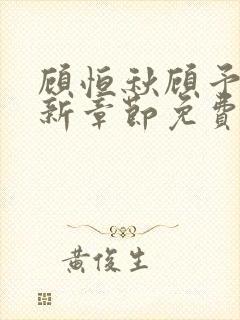 顾恒秋顾予
新章節免費
黃俊生